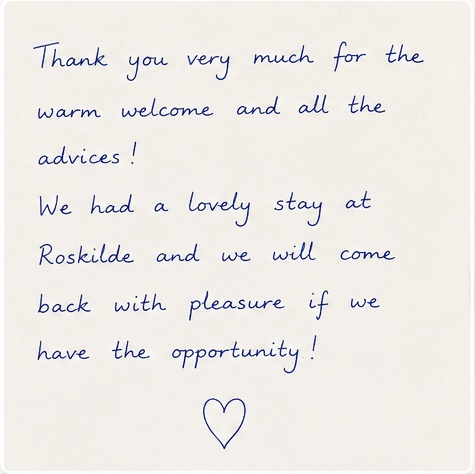 Thank you very much for the
warm welcome and all the
advices!
We had a lovely stay at
Roskilde and we will come
back with pleasure if we
have the opportunity!